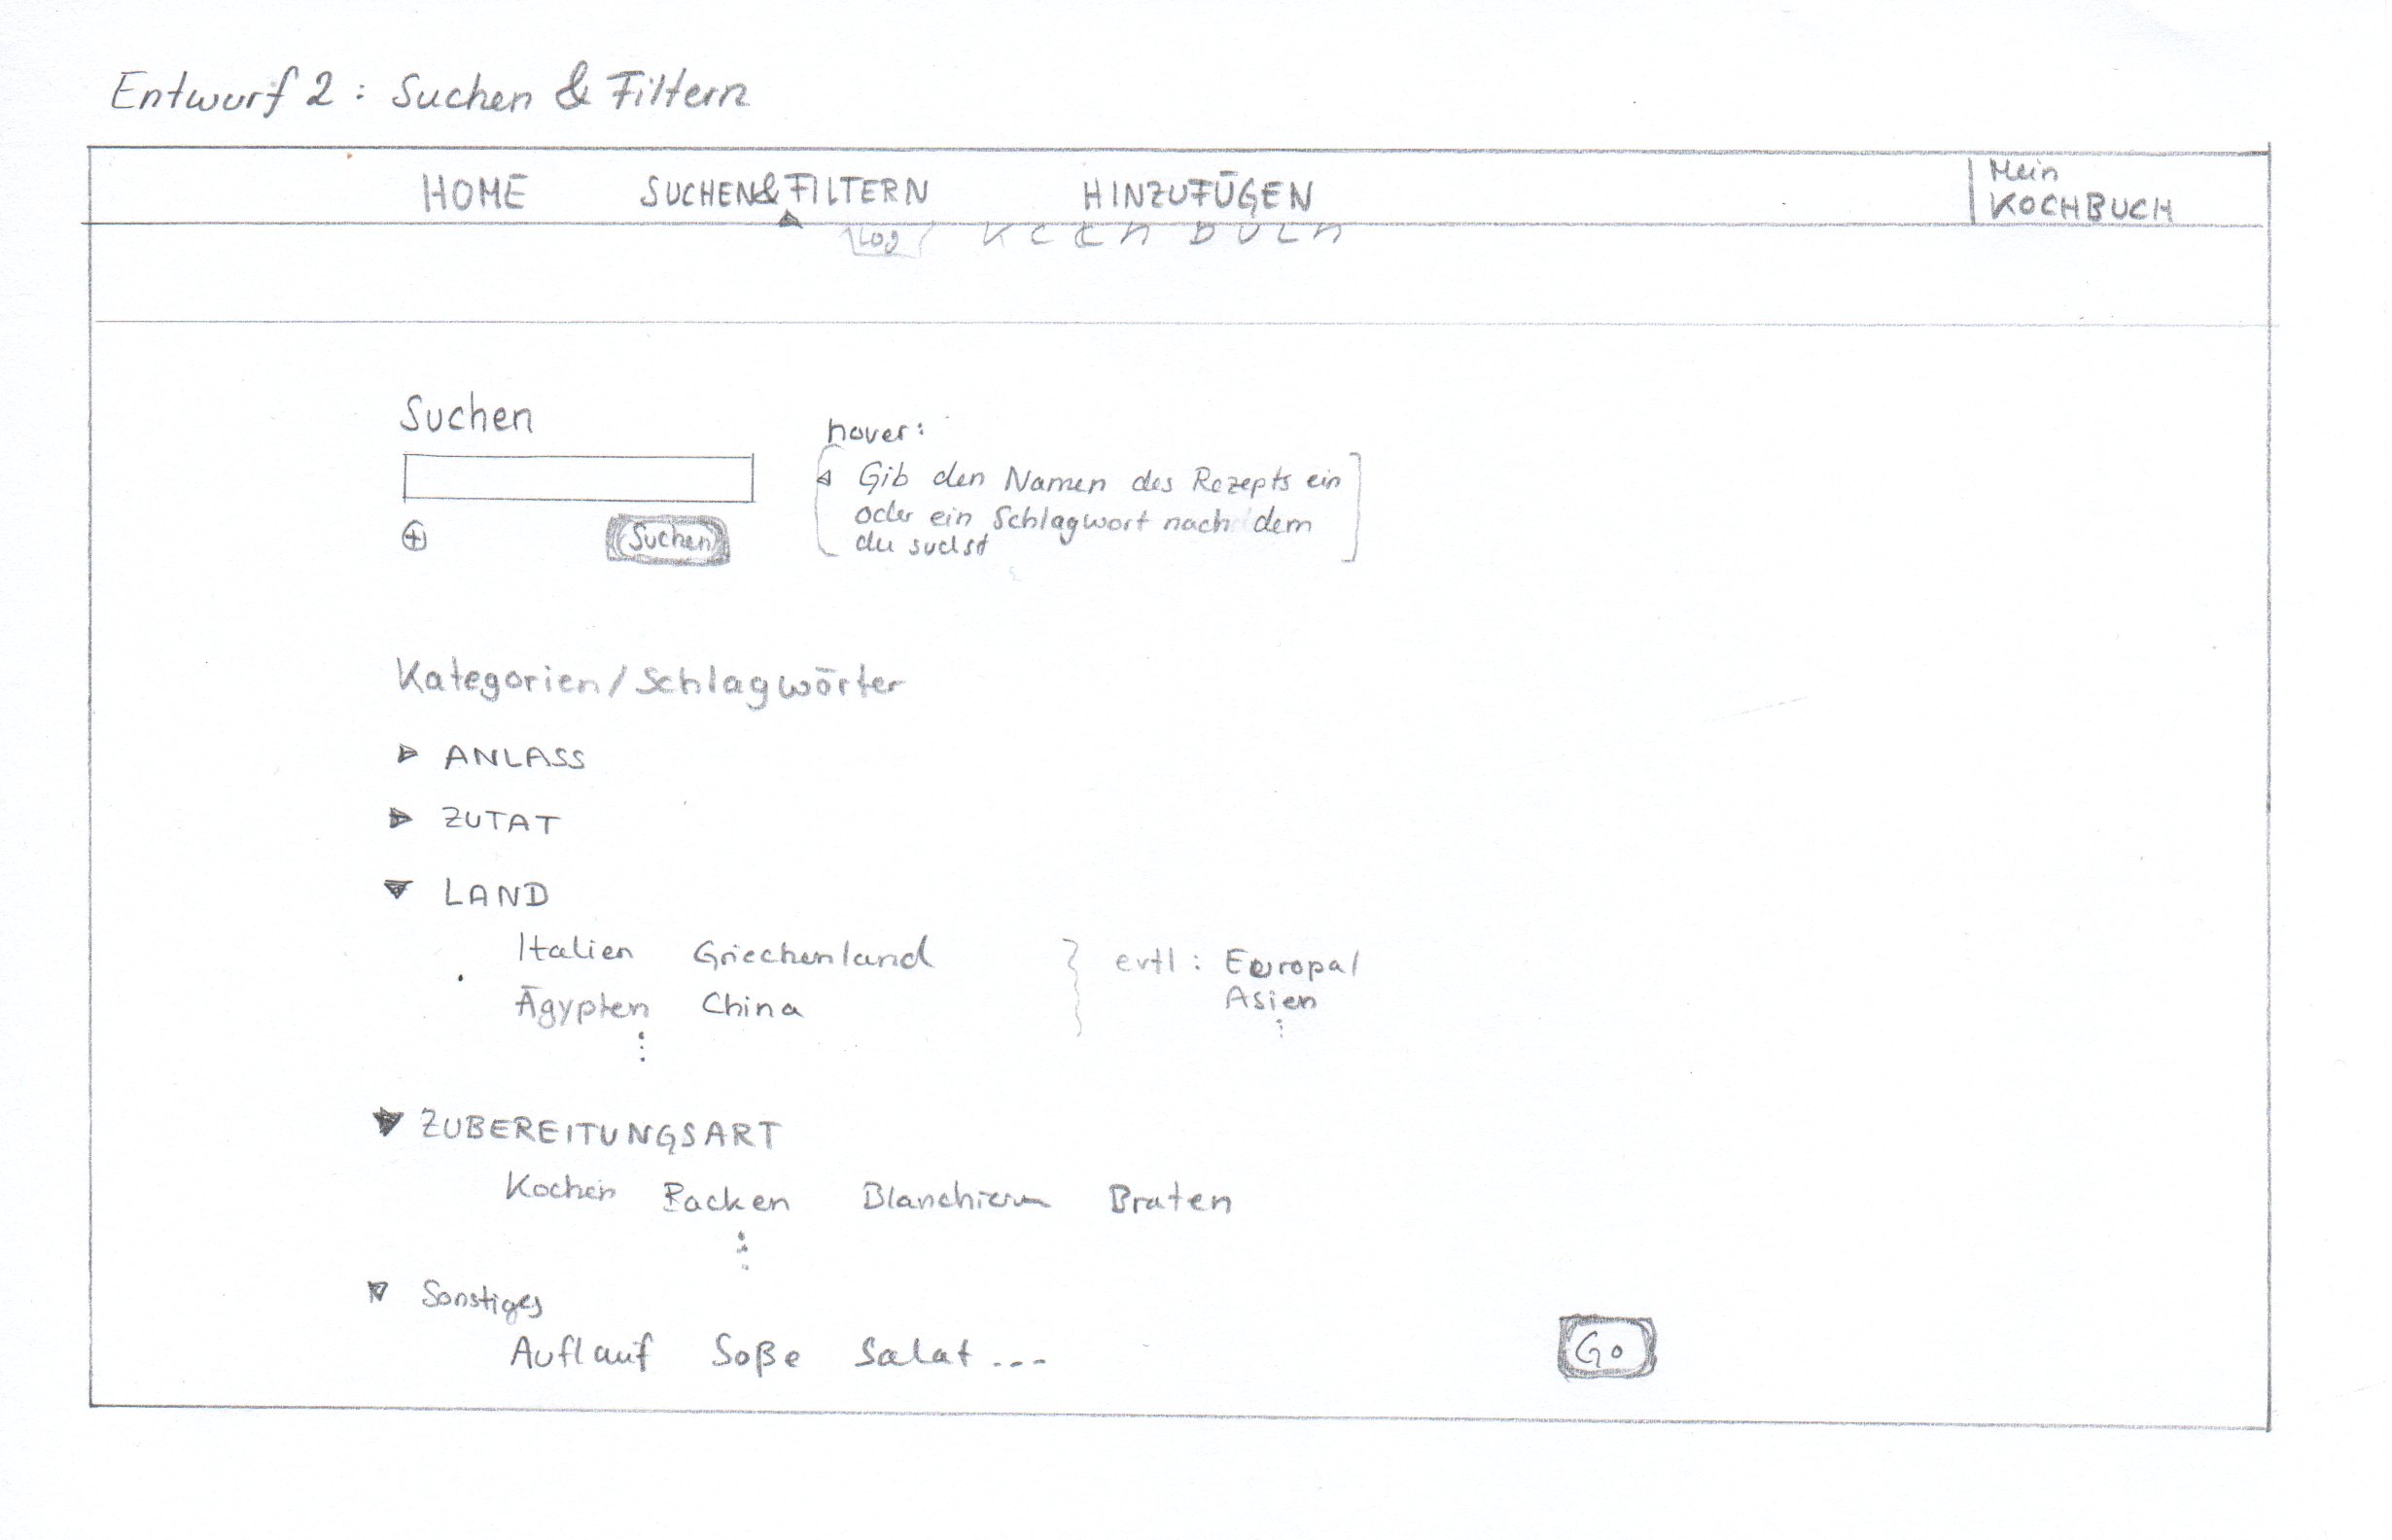 Entwurf 2 : Suchen & Filtern
HOME SUCHEN&FILTERN HINZUFÜGEN Mein KOCHBUCH
Log
Suchen
hover:
Gib den Namen des Rezepts ein
oder ein Schlagwort nach dem
du suchst
Suchen
Kategorien/Schlagwörter
ANLASS
ZUTAT
LAND
Italien Griechenland evtl : Europa/
Ägypten China Asien
ZUBEREITUNGSART
Kochen Backen Blanchieren Braten
Sonstiges
Auflauf Soße Salat ...
Go